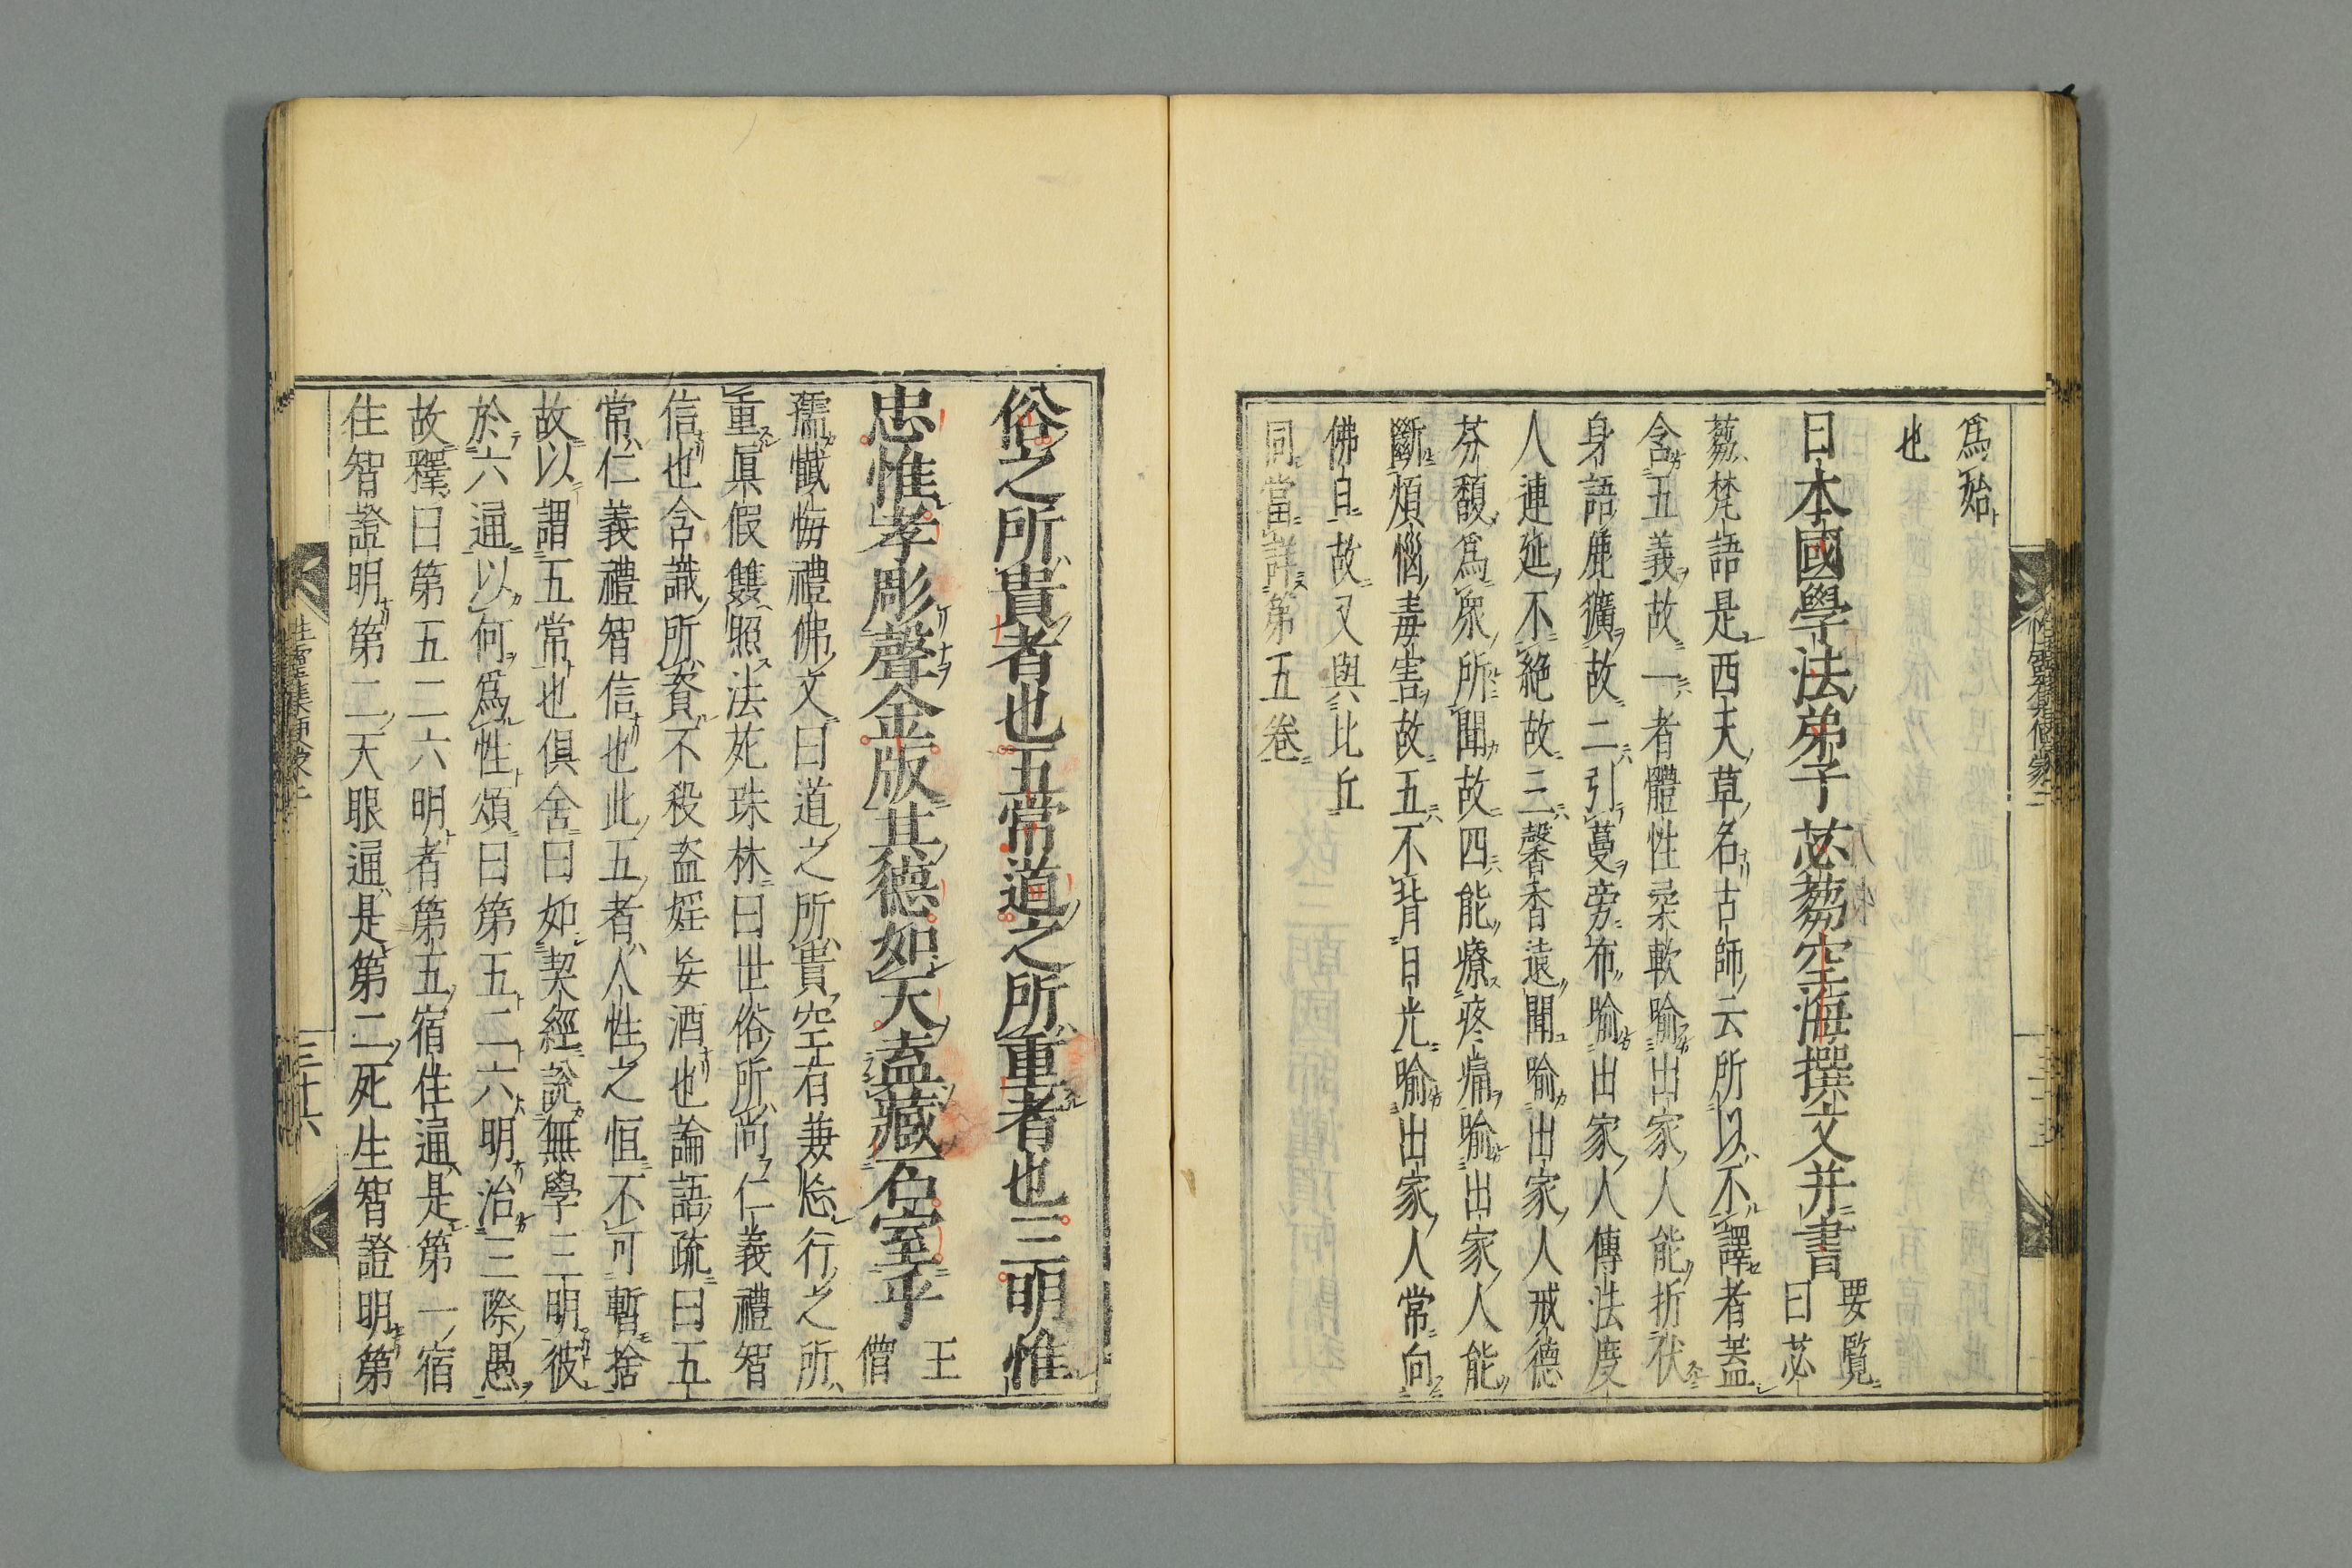 爲始
也
日本國學法弟子苾蒭空海撰文并書 要覧
曰苾
蒭梵語是西天草名古師云所以不譯者蓋
含五義故一者體性柔軟喩出家人能折伏
身語麁獷故二引蔓旁布喩出家人傳法度
人連延不絶故三馨香遠聞喩出家人戒德
芬馥爲衆所聞故四能療疼痛喩出家人能
斷煩惱毒害故五不背日光喩出家人常向
佛日故又與比丘
同當詳第五卷
俗之所貴者也五常道之所重者也三明惟
忠惟孝彫聲金版其德如天盍藏石室乎 王
僧
孺懺悔禮佛文曰道之所貴空有兼忘行之所
重眞假雙照法苑珠林曰世俗所尚仁義禮智
信也含識所資不殺盜婬妄酒也論語疏曰五
常仁義禮智信也此五者人性之恒不可暫捨
故以謂五常也俱舍曰如契經説無學三明彼
於六通以何爲性頌曰第五二六明治三際愚
故釋曰第五二六明者第五宿住通是第一宿
住智證明第二天眼通是第二死生智證明第
三十六